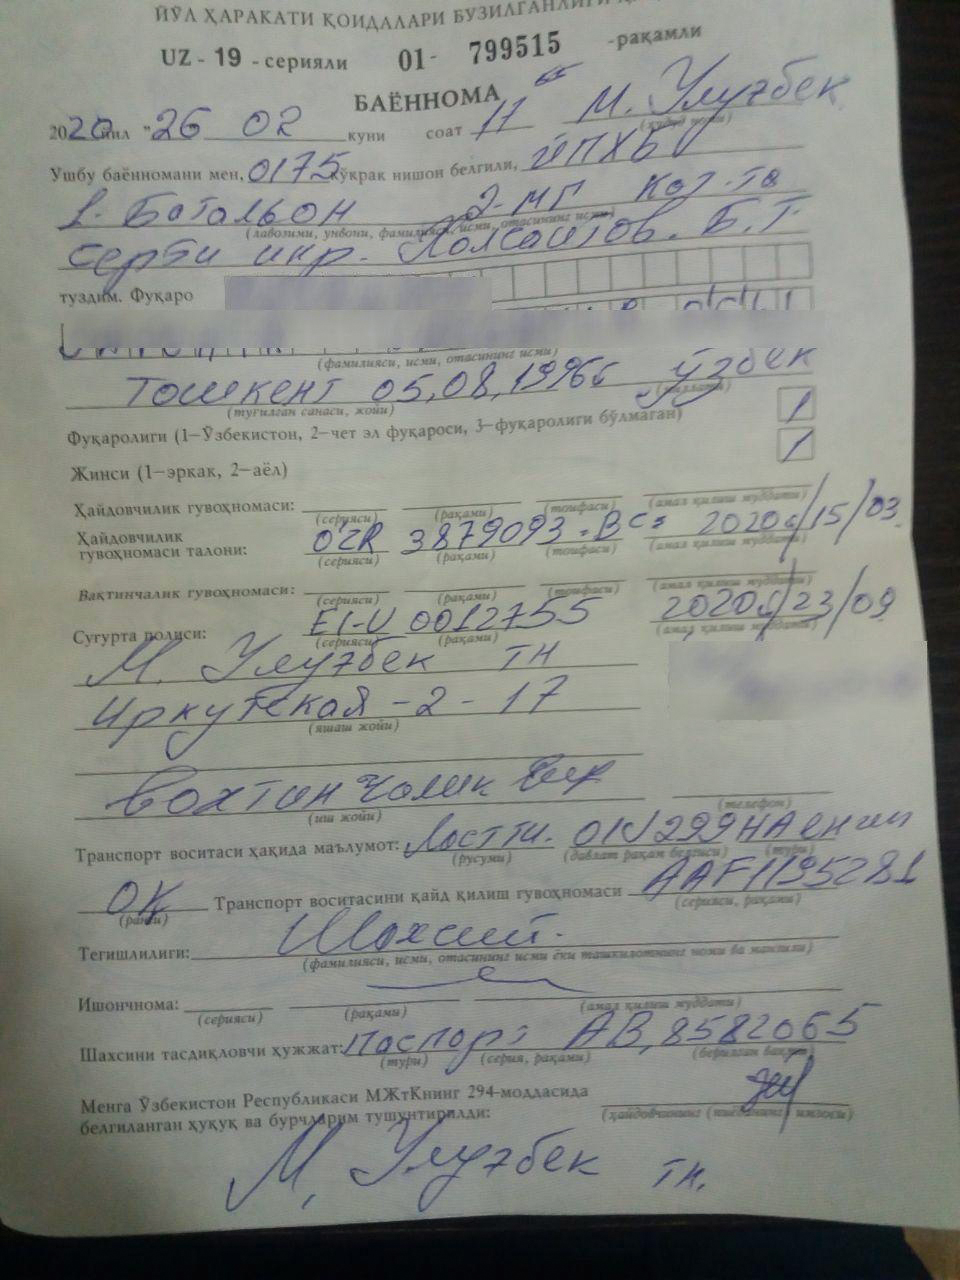 ЙЎЛ ҲАРАКАТИ ҚОИДАЛАРИ БУЗИЛГАНЛИГИ
UZ - 19 - серияли 01- 799515 -рақамли
БАЁННОМА
2020 йил "26 02 куни соат 11 М. Улуғбек
(ҳудуд номи)
Ушбу баённомани мен, 0175 кўкрак нишон белгили, ЙПХБ
1- Батальон 2-МГ кат-та
(лавозими, унвони, фамилияси, исми, отасининг исми)
серти инр. Б.Т
туздим. Фуқаро
(фамилияси, исми, отасининг исми)
Тошкент 05,08,1996й ўзбек
(туғилган санаси, жойи) (миллати)
Фуқаролиги (1–Ўзбекистон, 2–чет эл фуқароси, 3–фуқаролиги бўлмаган) 1
Жинси (1–эркак, 2–аёл) 1
Ҳайдовчилик гувоҳномаси:
(серияси) (рақами) (тоифаси) (амал қилиш муддати)
Ҳайдовчилик
гувоҳномаси талони: 3879093 . ВС 2020й/15/03
(серияси) (рақами) (тоифаси) (амал қилиш муддати)
Вақтинчалик гувоҳномаси:
(серияси) (рақами) (тоифаси) (амал қилиш муддати)
Суғурта полиси: 0012755 2020й/23/09
(серияси) (рақами) (амал қилиш муддати)
М. Улуғбек тн
Иркутская -2 - 17
(яшаш жойи)
Вохтинчалик
(иш жойи) (телефон)
Транспорт воситаси ҳақида маълумот: Ластти. 01U299HA енгил
(русуми) (давлат рақам белгиси) (тури)
ОҚ Транспорт воситасини қайд қилиш гувоҳномаси AAF1195281
(ранги) (серияси, рақами)
Тегишлилиги: Шахсий.
(фамилияси, исми, отасининг исми ёки ташкилотнинг номи ва манзили)
Ишончнома:
(серияси) (рақами) (амал қилиш муддати)
Шахсини тасдиқловчи ҳужжат: паспорт АВ, 8582065
(тури) (серия, рақами) (берилган вақти)
Менга Ўзбекистон Республикаси МЖтКнинг 294-моддасида
белгиланган ҳуқуқ ва бурчларим тушунтирилди: (ҳайдовчининг (пиёданинг) имзоси)
М. Улуғбек тн.